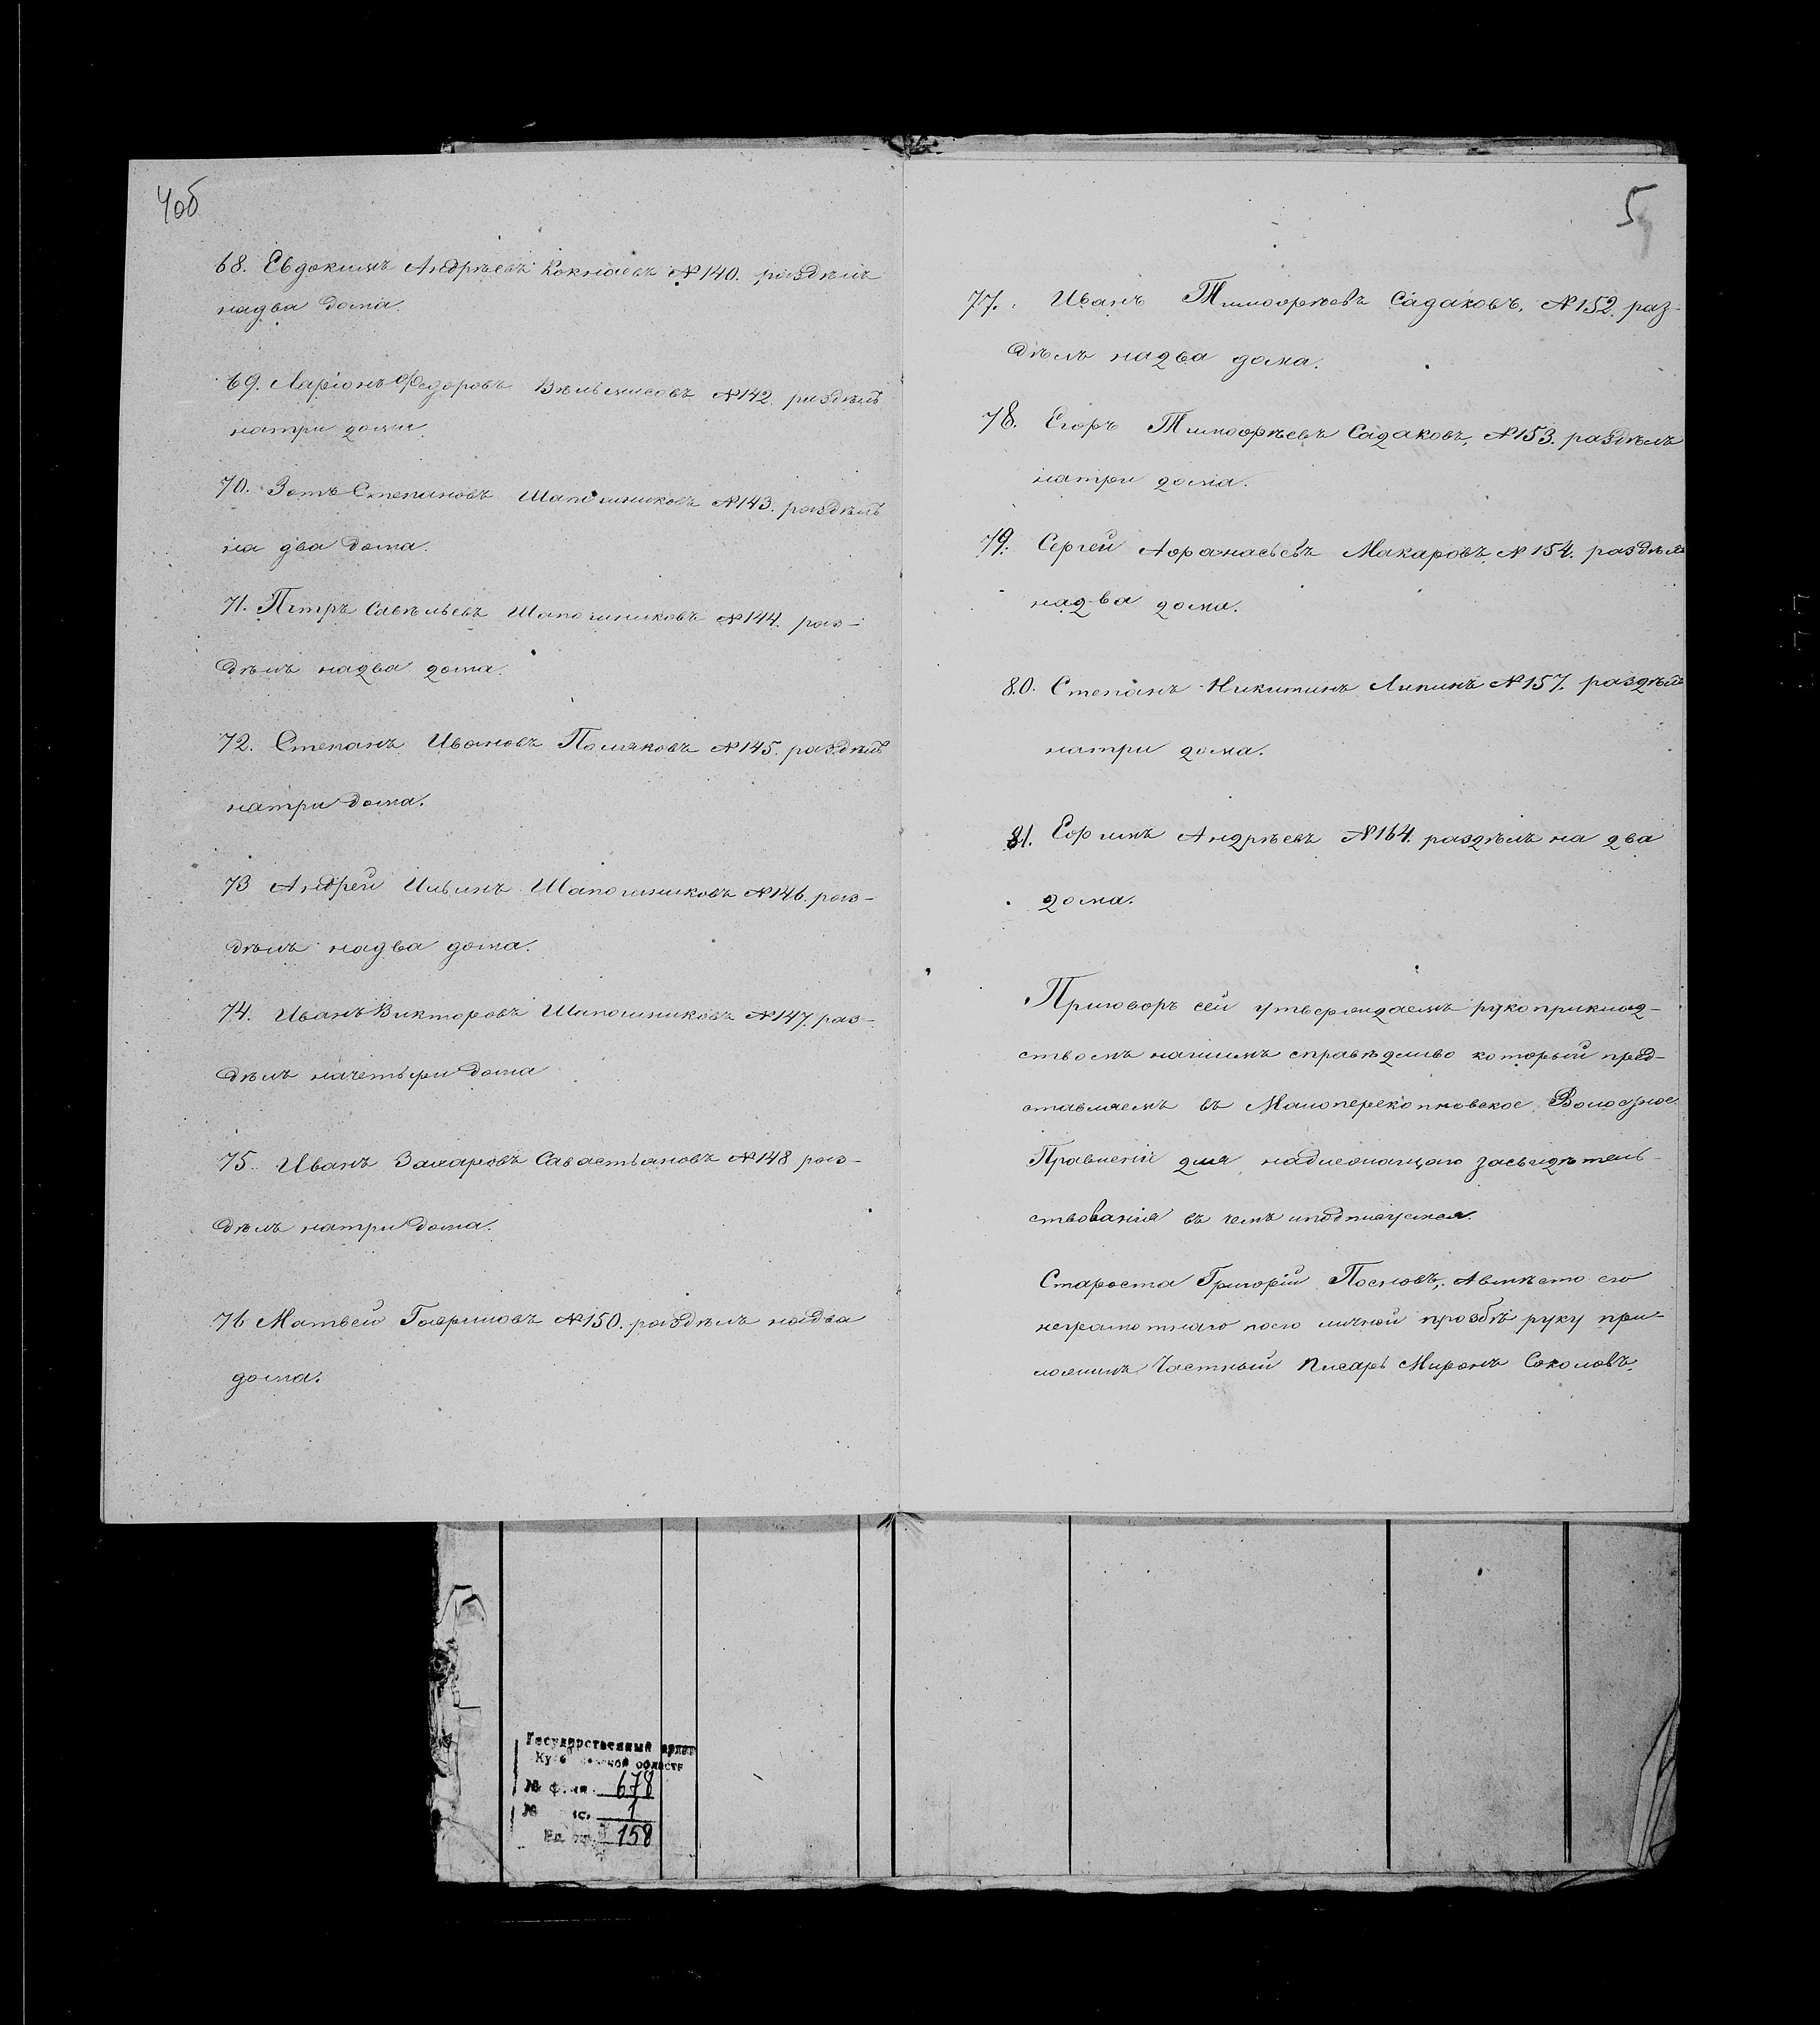 4об
68. Евдокимъ Андрѣевъ Кокнаевъ №140. раздѣлъ
надва дома.
69. Ларіонъ Федоровъ Вѣльмисовъ №142. раздѣлъ
натри дома.
70. Зотъ Степановъ Шапошниковъ №143. раздѣлъ
на два дома.
71. Петръ Савѣльевъ Шапошниковъ №144. раз-
дѣлъ надва дома.
72. Степанъ Ивановъ Поляковъ №145. раздѣлъ
натри дома.
73 Андрей Ильинъ Шапошниковъ №146. раз-
дѣлъ надва дома.
74. Иванъ Викторовъ Шапошниковъ №147. раз-
дѣлъ начетыри дома
75. Иванъ Захаровъ Савастьяновъ №148 раз-
дѣлъ натри дома.
76 Матвей Гавриловъ №150. раздѣлъ надва
дома.
5
77. Иванъ Тимофѣевъ Садаковъ, №152. раз-
дѣлъ надва дома.
78. Егоръ Тимофѣевъ Садаковъ, №153. раздѣлъ
натри дома.
79. Сергей Афанасьевъ Макаровъ, №154. раздѣлъ
надва дома.
80. Степанъ Никитинъ Липинъ №157. раздѣлъ
натри дома.
81. Ефимъ Андрѣевъ №164. раздѣлъ на два
дома.
Приговоръ сей утверждаемъ рукоприклад-
ствомъ нашимъ справѣдливо который пред-
ставляемъ въ Малоперекопновское Волостное
Правленіе для надлежащаго засвидѣтель-
ствованія въ чемъ иподписуемся.
Староста Григорій Посновъ, Авмѣсто его
неграмотнаго поего личной прозбѣ руку при-
ложилъ Частный Писарь Миронъ Соколовъ.
Государственный архив
ской области
№ 678
№ 1
158